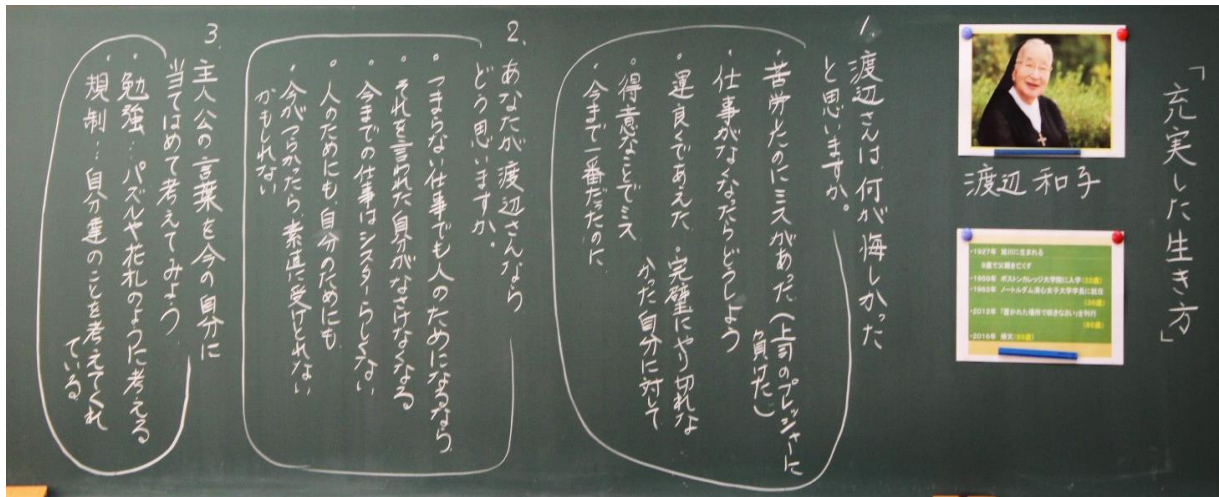 「充実した生き方」
渡辺 和子
・1927年 旭川に生まれる
9歳で父親を亡くす
・1959年 ボストンカレッジ大学院に入学(32歳)
・1963年 ノートルダム清心女子大学学長に就任
(36歳)
・2012年 「置かれた場所で咲きなさい」を刊行
(85歳)
・2016年 帰天(89歳)
1. 渡辺さんは、何が悔しかった
と思いますか。
・苦労したのにミスがあった(上司のプレッシャーに
負けた)
・仕事がなくなったらどうしよう
・運良くであえた
・完璧にやり切れな
かった自分に対して
・得意なことでミス
・今まで一番だったのに
2. あなたが渡辺さんなら
どう思いますか。
・つまらない仕事でも人のためになるなら
・それを言われた自分がなさけなくなる
・今までの仕事はシスターらしくない
・人のためにも、自分のためにも
・今がつらかったら、素直に受けとれない
かもしれない
3. 主人公の言葉を今の自分に
当てはめて考えてみよう
・勉強…パズルや花札のように考える
・規制…自分達のことを考えてくれ
ている